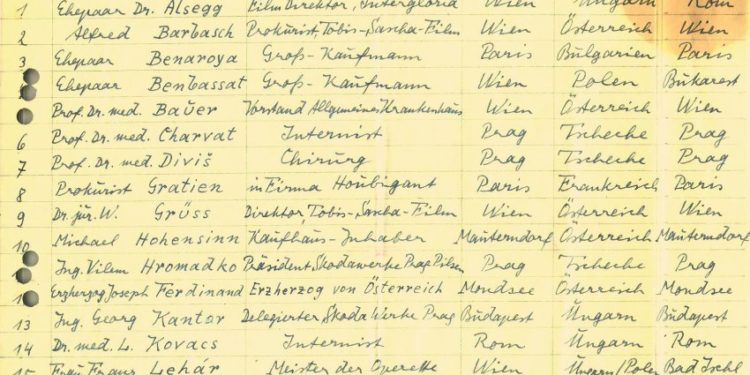 1 Ehepaar Dr. Alsegg Film Direktor, Intergloria Wien Ungarn Rom
2 Alfred Barbasch Prokurist, Tobis-Sascha-Film Wien Österreich Wien
3 Ehepaar Benaroya Groß-Kaufmann Paris Bulgarien Paris
Ehepaar Benbassat Groß-Kaufmann Wien Polen Bukarest
Prof. Dr. med. Bauer Vorstand Allgemeines Krankenhaus Wien Österreich Wien
6 Prof. Dr. med. Charvat Internist Prag Tscheche Prag
7 Prof. Dr. med. Diviš Chirurg Prag Tscheche Prag
8 Prokurist Gratien in Firma Houbigant Paris Frankreich Paris
9 Dr. jur. W. Grüss Direktor, Tobis-Sascha-Film Wien Österreich Wien
10 Michael Hohensinn Kaufhaus-Inhaber Mauterndorf Österreich Mauterndorf
Ing. Vilem Hromadko Präsident, Skodawerke Prag Pilsen Prag Tscheche Prag
1 Erzherzog Joseph Ferdinand Erzherzog von Österreich Mondsee Österreich Mondsee
13 Ing. Georg Kantor Delegierter, Skoda Werke Prag Budapest Ungarn Budapest
14 Dr. med. L. Kovacs Internist Rom Ungarn Rom
15 Frau Franz Lehár Meister der Operette Wien Ungarn/Polen Bad Ischl